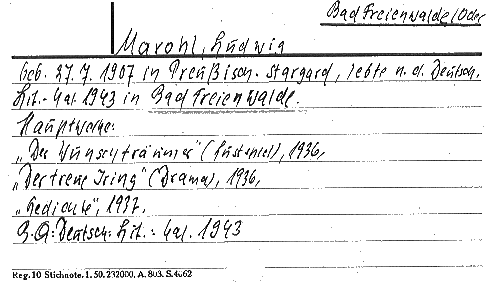 Bad Freienwalde/Oder
Marohl, Ludwig
geb. 27.7.1907 in Preußisch-Stargard, lebte n.d. Deutsch.
Lit.-Kal. 1943 in Bad Freienwalde.
Hauptwerke:
„Der Wunschträumer" (Lustspiel), 1936,
„Der treue Iring" (Drama), 1936,
„Gedichte", 1937.
Z.Q.: Deutsch. Lit.-Kal. 1943
Reg. 10 Stichnote. 1. 50. 232000. A. 803. S. 4662